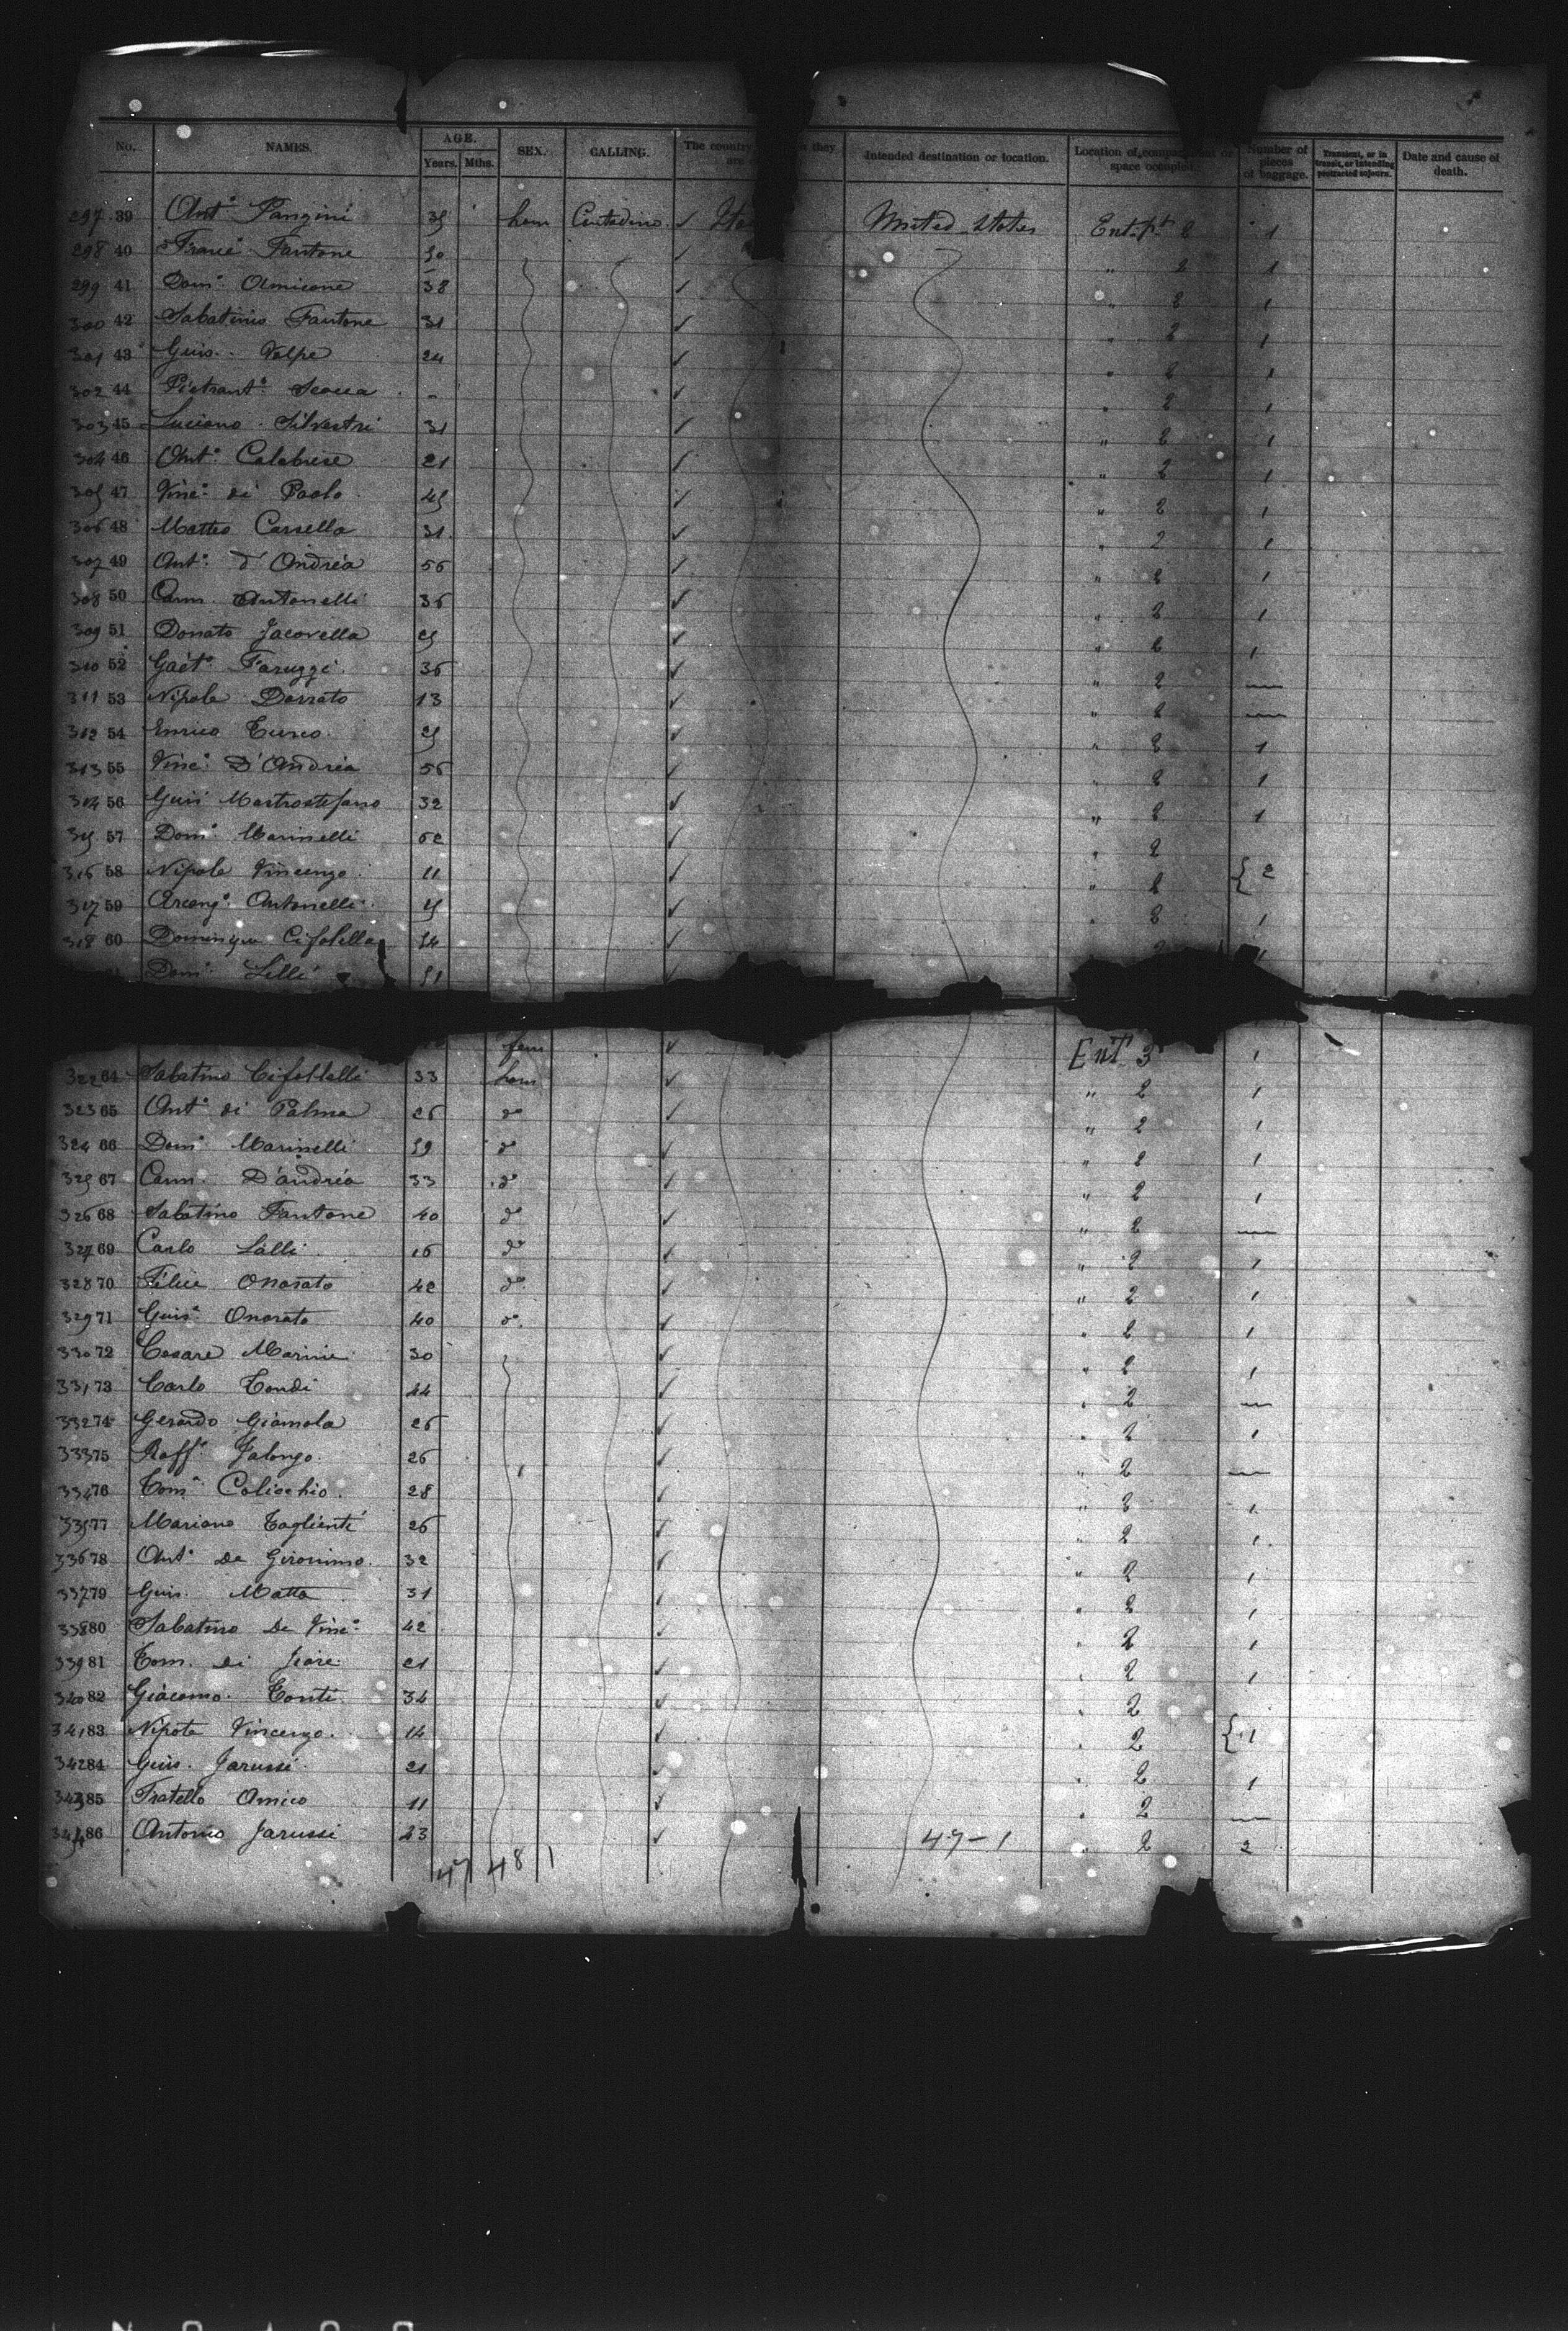 No. NAMES. AGE. Years. Mths. SEX. CALLING. The country they are Intended destination or location. Location of compartment or space occupied. Number of pieces of baggage. Transient, or in transit, or intending protracted sojourn. Date and cause of death.
297 39 Ant° Pangini 35 hom Contadino ✓ Ita United States Entpt 2 1
298 40 Franc° Fantone 50 ✓ " 2 1
299 41 Dom° Amicone 38 ✓ " 2 1
300 42 Sabatino Fantone 31 ✓ " 2 1
301 43 Guis. Volpe 24 ✓ " 2 1
302 44 Pietrant° Scocca - ✓ " 2 1
303 45 Luciano Silvestri 31 ✓ " 2 1
304 46 Ant° Calabrese 21 ✓ " 2 1
305 47 Vinc° di Paolo 45 ✓ " 2 1
306 48 Matteo Carsella 31 ✓ " 2 1
307 49 Ant° d'Andréa 56 ✓ " 2 1
308 50 Carm. Antonelli 36 ✓ " 2 1
309 51 Donato Jacovella 25 ✓ " 2 1
310 52 Gaet° Faruzzi 36 ✓ " 2 —
311 53 Nipote Donato 13 ✓ " 2 —
312 54 Enrico Turco 25 ✓ " 2 1
313 55 Vinc° D'Andréa 56 ✓ " 2 1
314 56 Guis Mastrostefano 32 ✓ " 2 1
315 57 Dom° Marinelli 52 ✓ " 2
316 58 Nipote Vincenzo 11 ✓ " 2 { 2
317 59 Arcang° Antonelli 45 ✓ " 2 1
318 60 Dominique Cifolella 54 ✓ 2 1
Dom° Lilli 51 ✓
fem ✓ Ent. 3 1
322 64 Sabatino Cifoltelli 33 hom ✓ " 2 1
323 65 Ant° di Palma 26 d° ✓ " 2 1
324 66 Dom° Marinelli 59 d° ✓ " 2 1
325 67 Carm. D'andréa 33 d° ✓ " 2 1
326 68 Sabatino Fantone 40 d° ✓ " 2 —
327 69 Carlo Lalli 16 d° ✓ " 2 1
328 70 Félice Onorato 42 d° ✓ " 2 1
329 71 Guis° Onorato 40 d° ✓ " 2 1
330 72 Cesare Marini 30 ✓ " 2 1
331 73 Carlo Tondi 44 ✓ " 2 —
332 74 Gerardo Giamola 26 ✓ " 2 1
333 75 Raff° Jalongo 26 ✓ " 2 —
334 76 Tom° Colicchio 28 ✓ " 2 1
335 77 Mariano Tagliente 26 ✓ " 2 1
336 78 Ant° De Gironimo 32 ✓ " 2 1
337 79 Guis. Matta 31 ✓ " 2 1
338 80 Sabatino De Vinc° 42 ✓ " 2 1
339 81 Tom. di Fiore 21 ✓ " 2 1
340 82 Giácomo Conti 34 ✓ " 2
341 83 Nipote Vincenzo 14 ✓ " 2 { 1
342 84 Guis. Jarussi 21 ✓ " 2 1
343 85 Fratello Amico 11 ✓ " 2 —
344 86 Antonio Jarussi 23 ✓ 47-1 " 2 2
47 48 1